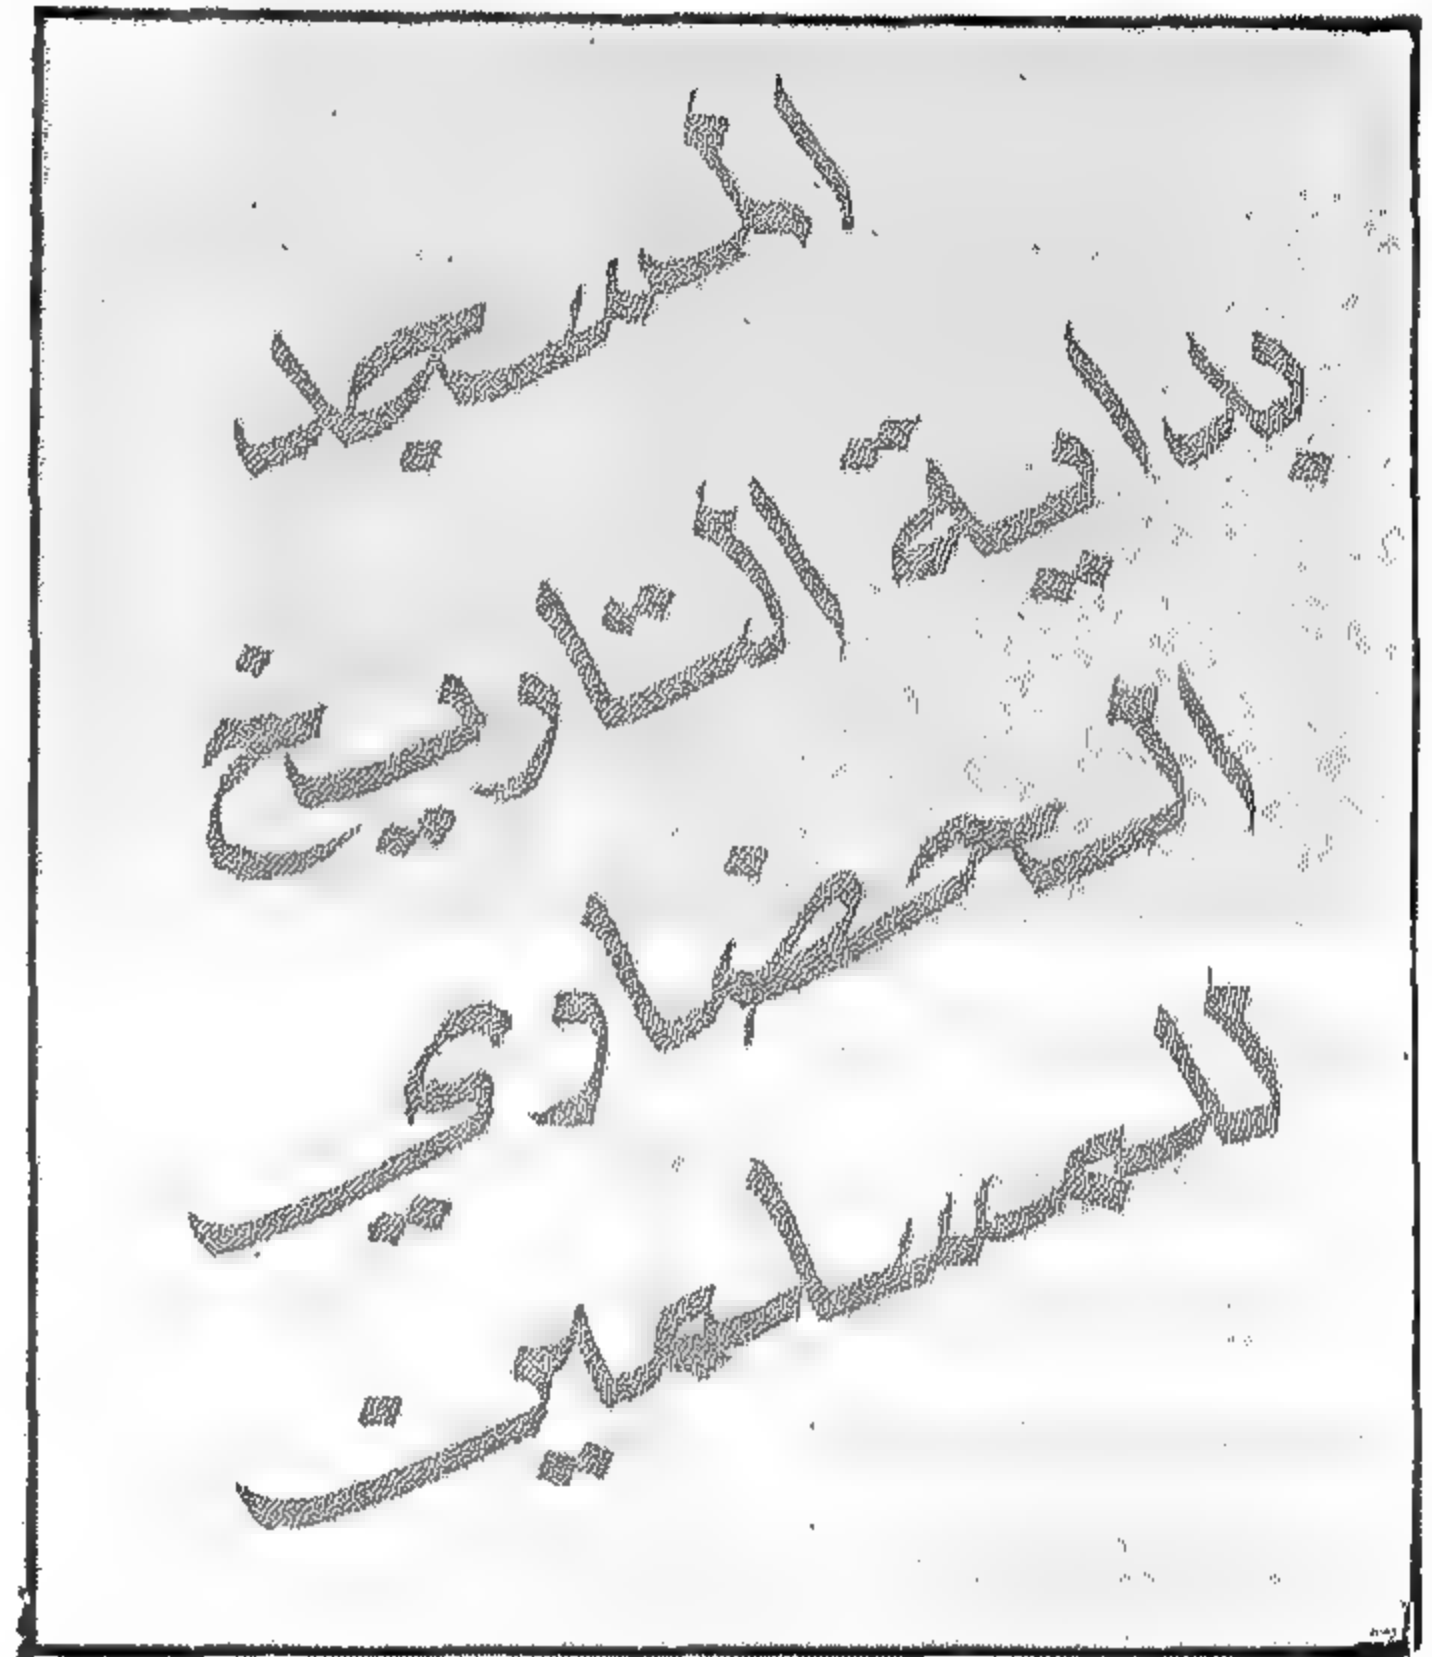 المسجد
بداية التاريخ
الحضاري
للمسلمين